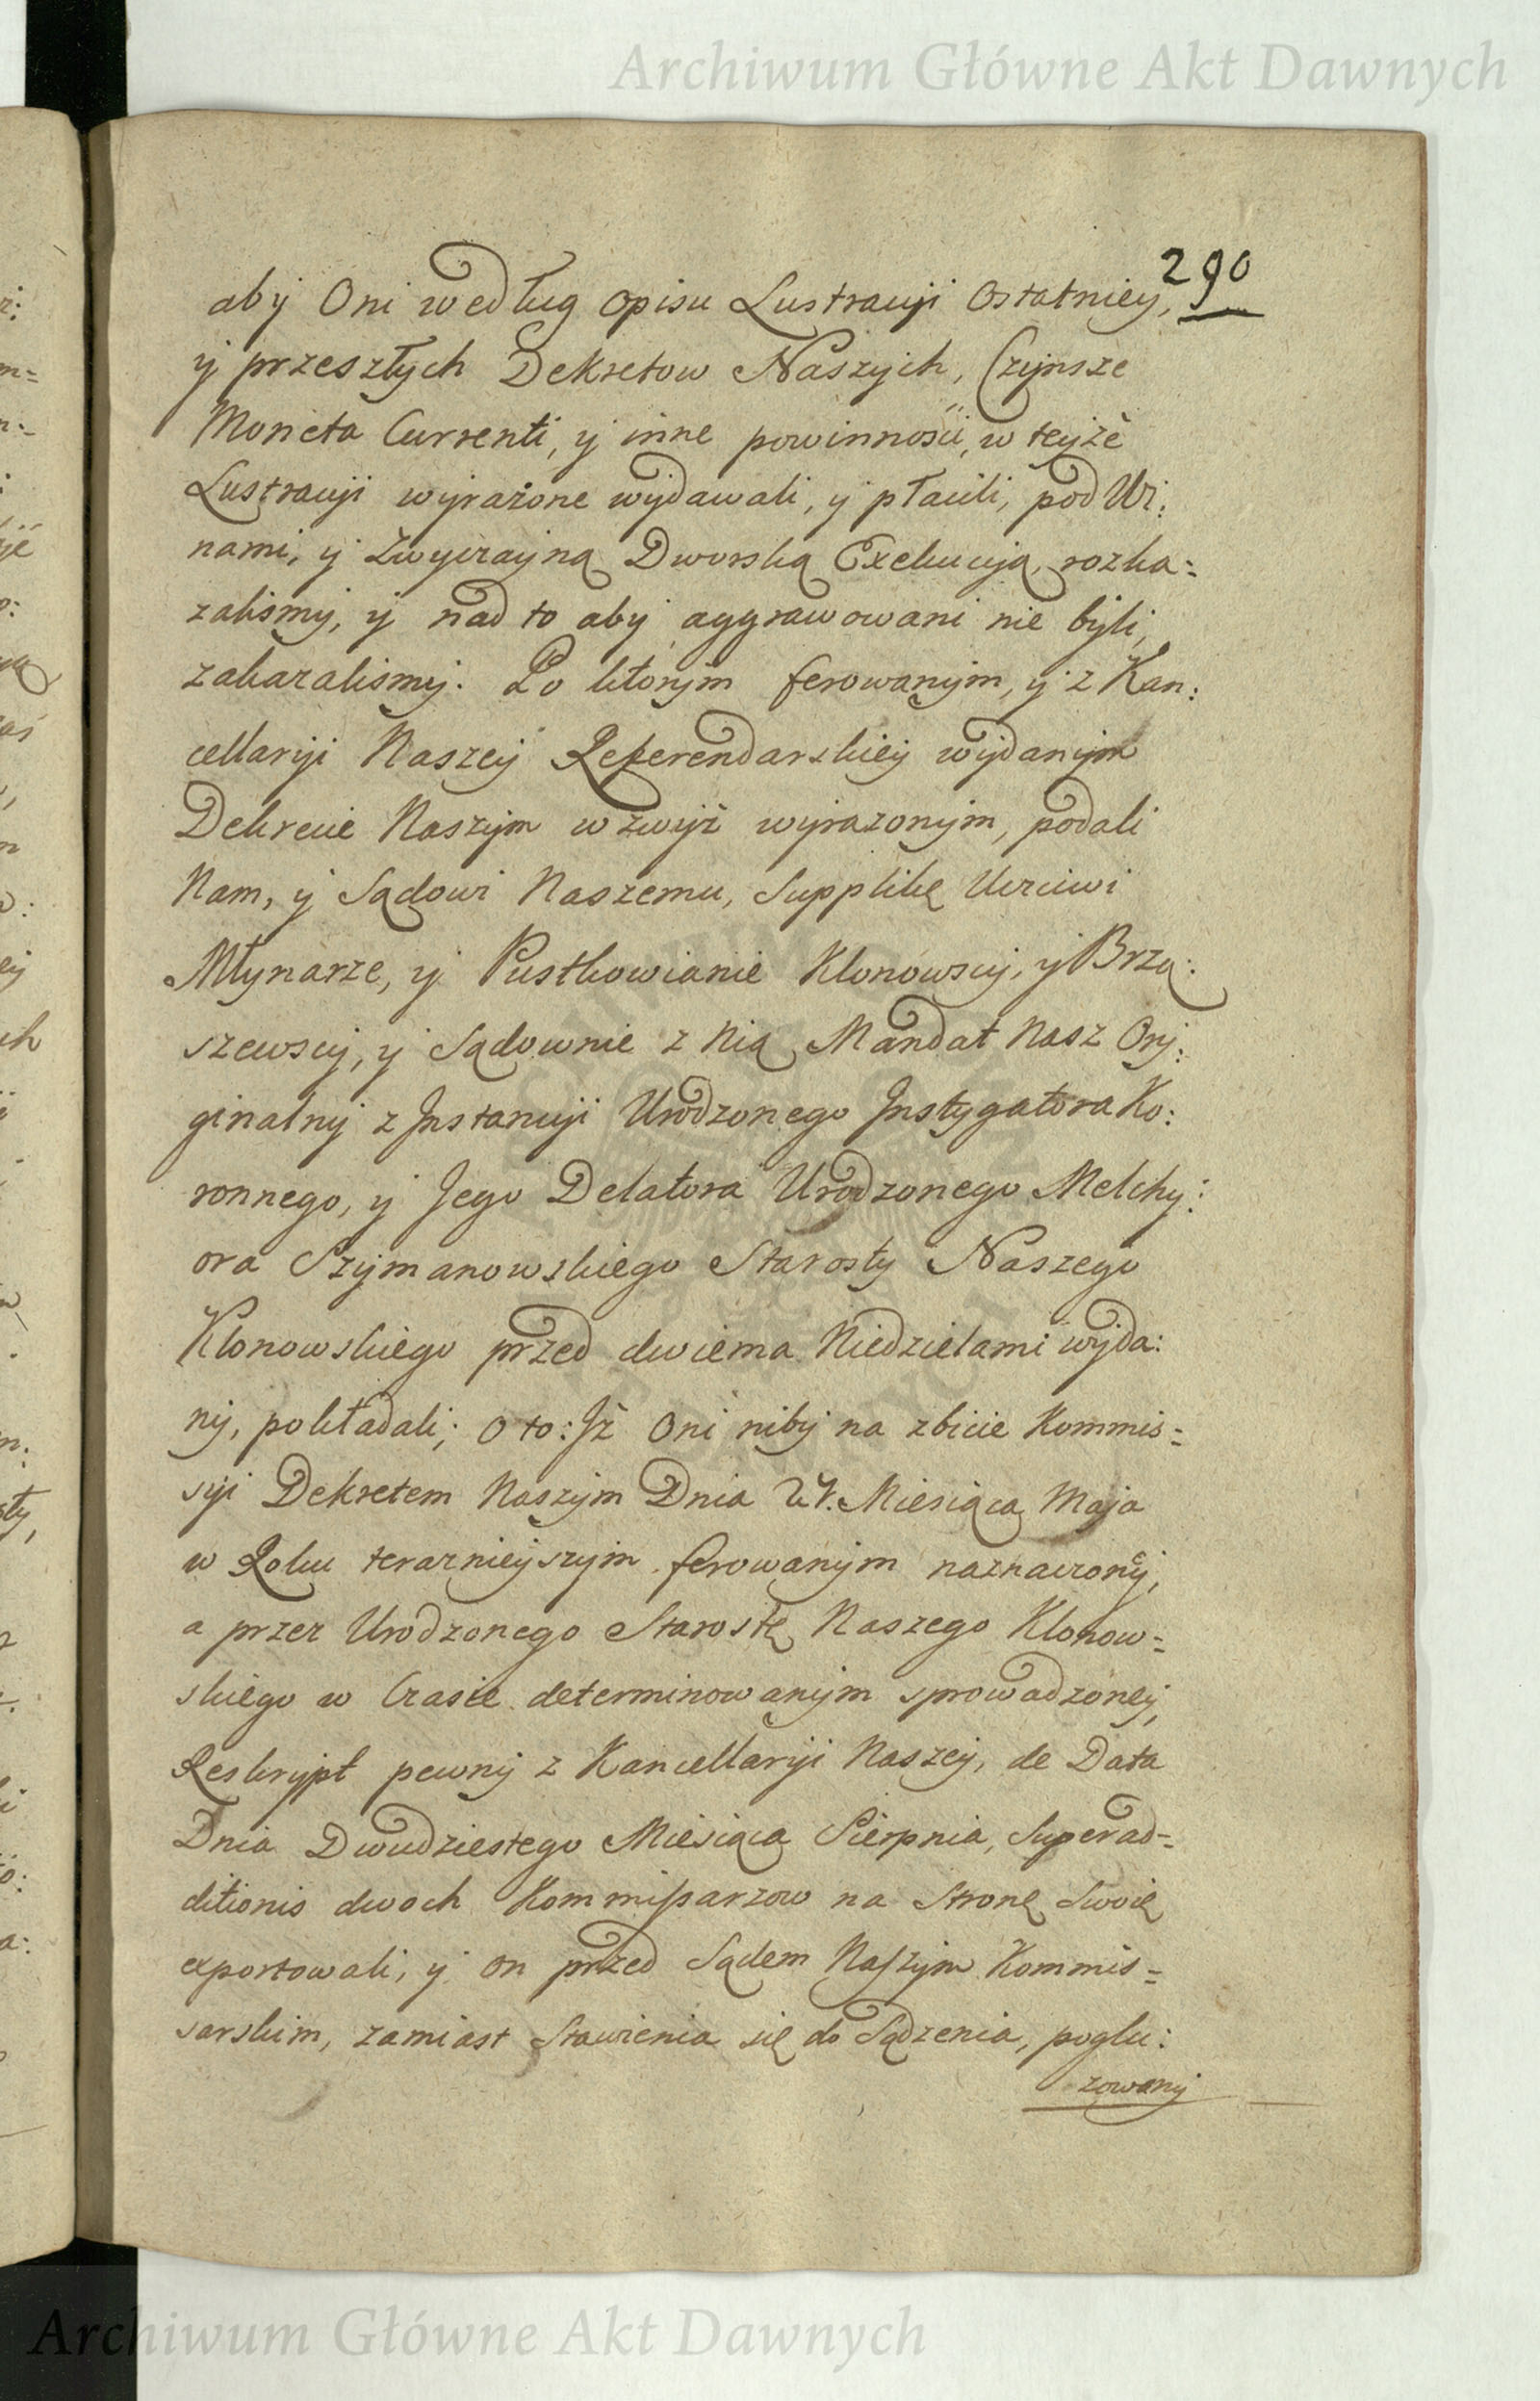 Archiwum Główne Akt Dawnych
290
aby Oni według opisu Lustracyi Ostatniey,
y przeszłych Dekretow Naszych, Czynsze
Moneta Currenti, y inne powinności, w teyże
Lustracyi wyrażone wydawali, y płacili, pod Wi:
nami, y Zwyczayną Dworską Exekucyą, rozka=
zalismy, y nad to aby aggrawowani nie byli,
zakazalismy. Po ktorym ferowanym, y z Kan:
cellaryi Naszey Referendarskiey wydanym
Dekrecie Naszym wzwyż wyrazonym, podali
Nam, y Sądowi Naszemu, Supplikę Uczciwi
Młynarze, y Pustkowianie Klonowscy, y Brzą:
szewscy, y Sądownie z Nią Mandat Nasz Ory:
ginalny z Jnstancyi Urodzonego Jnstygatora Ko:
ronnego, y Jego Delatora Urodzonego Melchy:
ora Szymanowskiego Starosty Naszego
Klonowskiego przed dwiema Niedzielami wyda:
ny, pokładali; o to: Jż Oni niby na zbicie Kommis=
syi Dekretem Naszym Dnia 27. Miesiąca Maja
w Roku teraznieyszym ferowanym naznaczoney,
a przez Urodzonego Starostę Naszego Klonow=
skiego w Czasie determinowanym sprowadzoney,
Reskrypt pewny z Kancellaryi Naszey, de Data
Dnia Dwudziestego Miesiąca Sierpnia, Superad=
ditionis dwoch Kommissarzow na Stronę Swoię
exportowali, y on przed Sądem Naszym Kommis=
sarskim, zamiast Stawienia się do Sądzenia, poglu:
zowany
Archiwum Główne Akt Dawnych